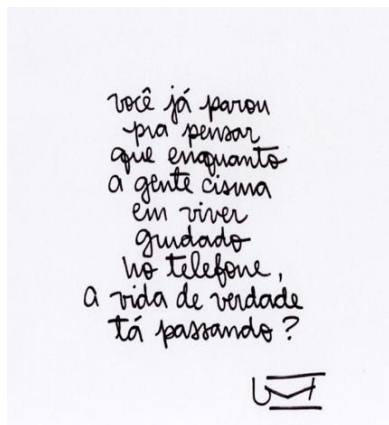 você já parou
pra pensar
que enquanto
a gente cisma
em viver
grudado
no telefone,
a vida de verdade
tá passando?